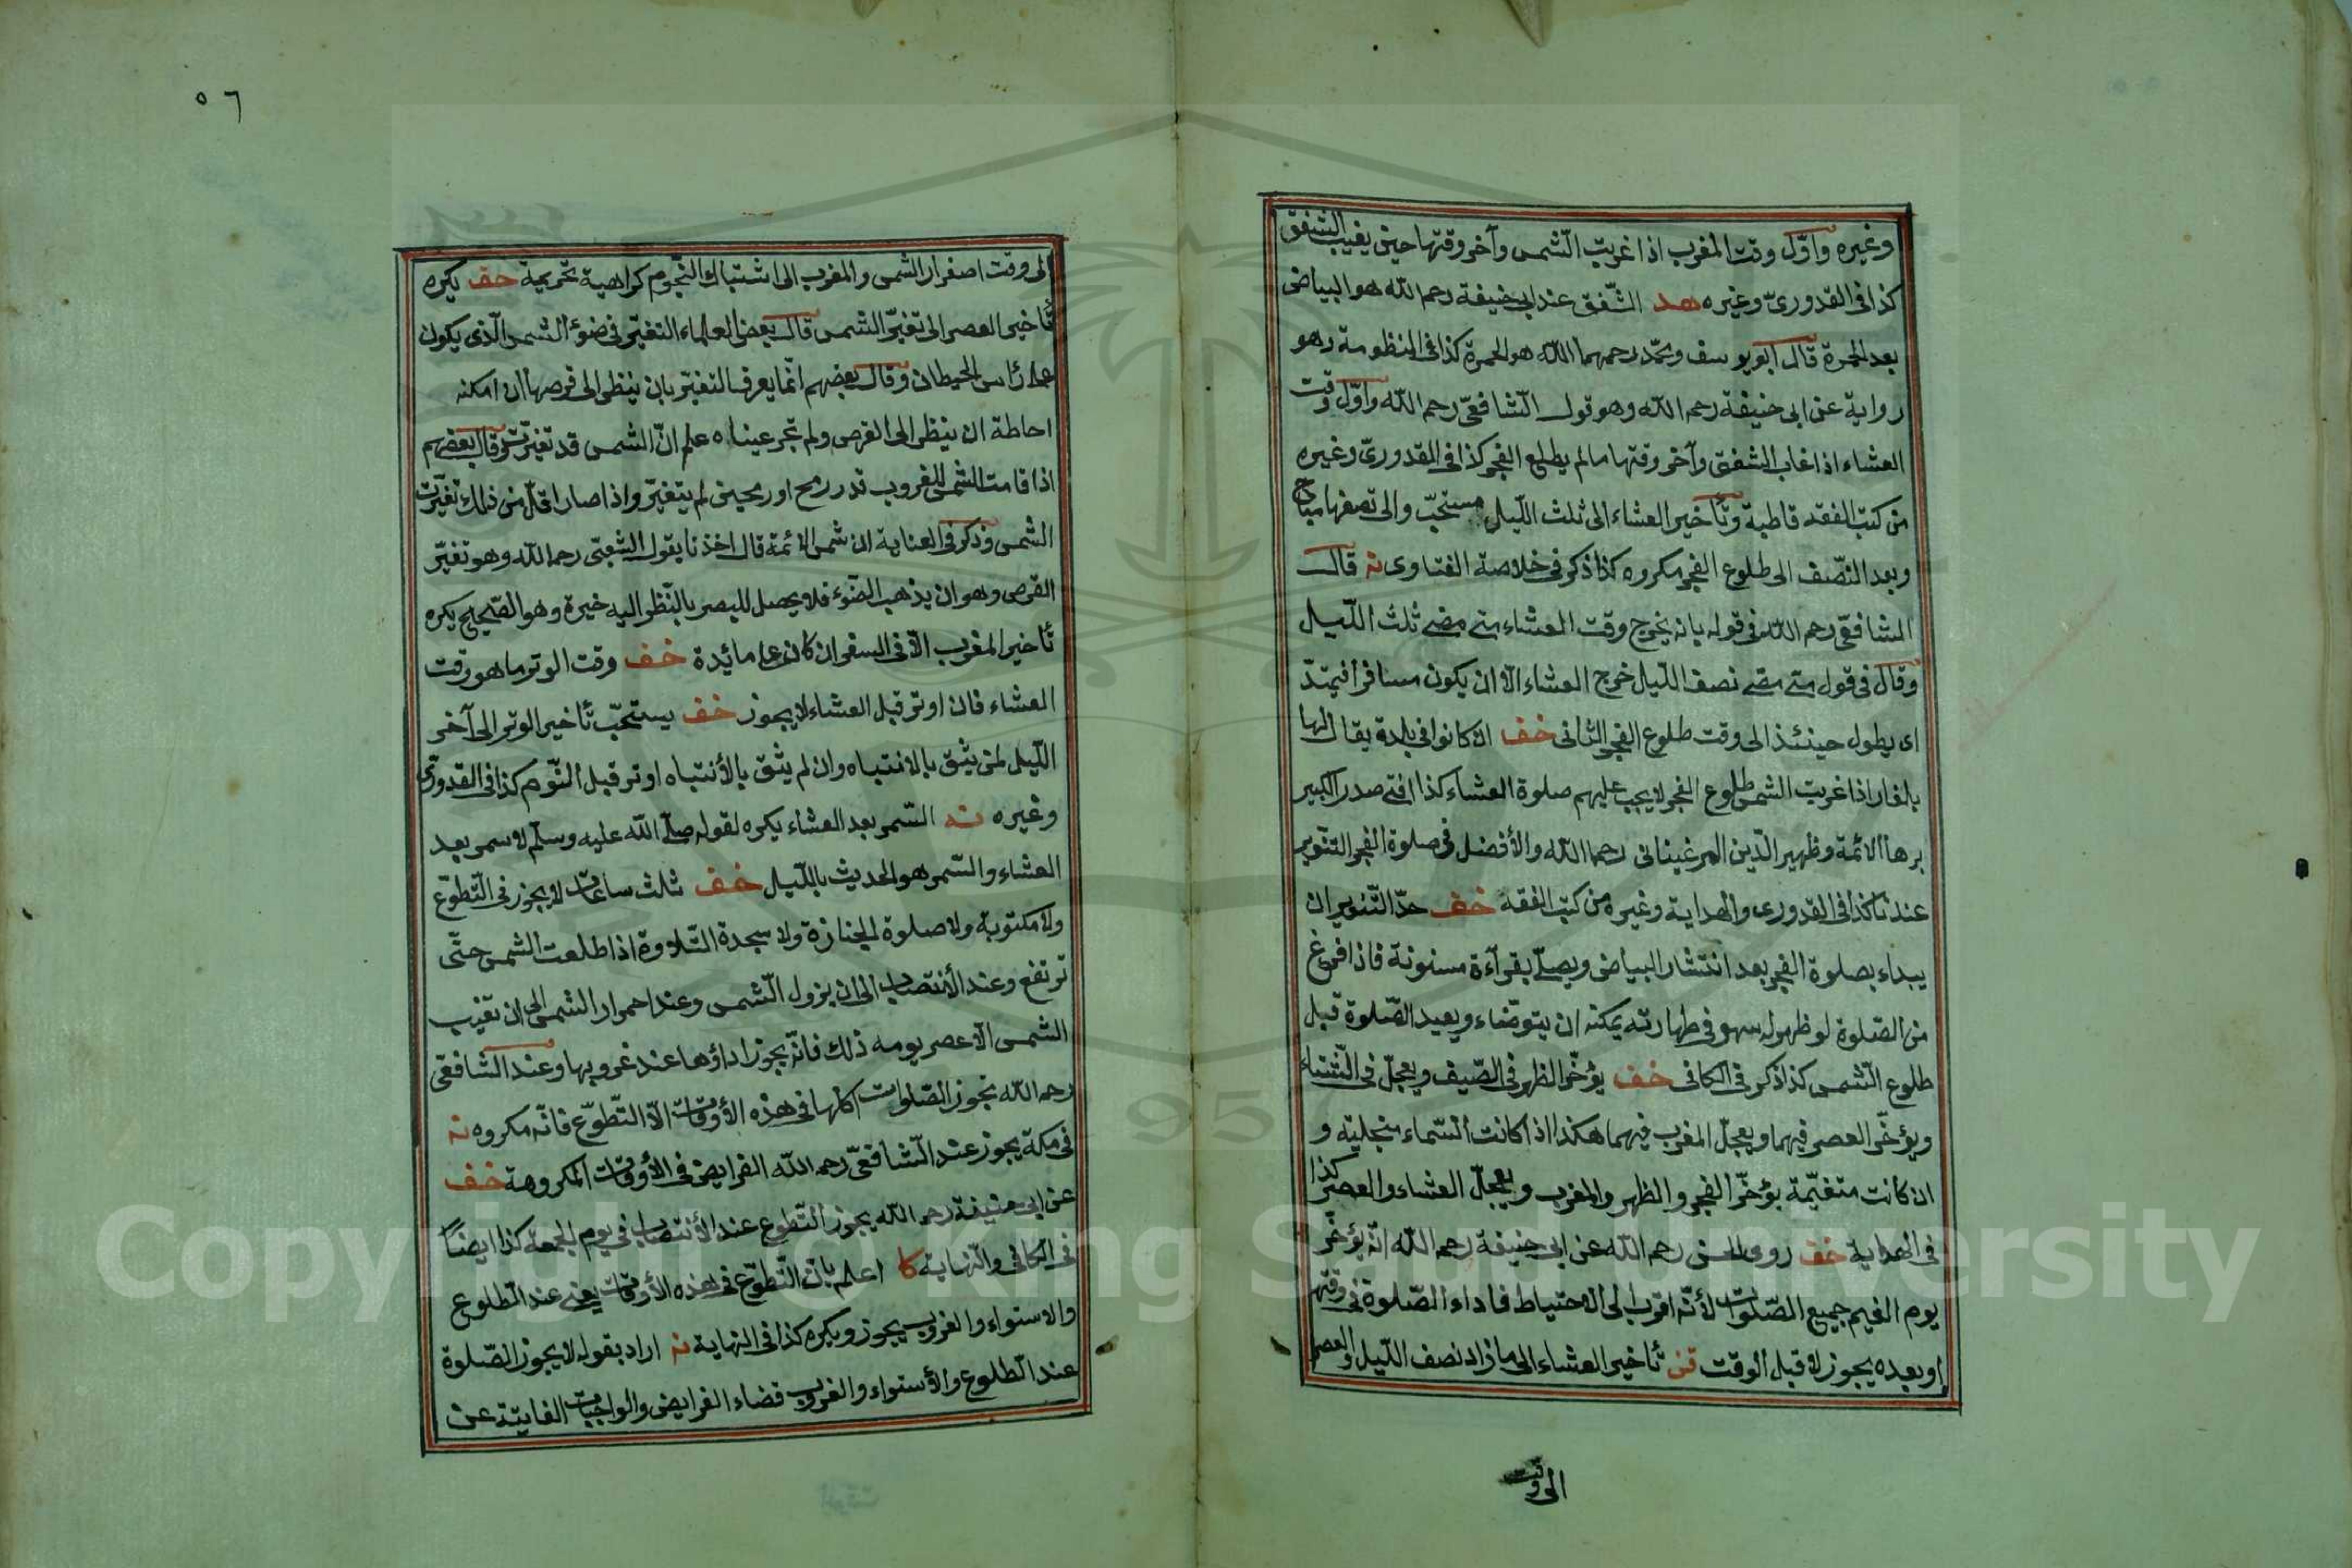 وغيره واوّل وقت المغرب اذا غربت الشّمس وآخر وقتها حين يغيب الشفق
كذا فى القدورىّ وغيره هد الشّفق عند ابى حنيفة رحمه الله هو البياض
بعد الحمرة قال ابو يوسف ومحمّد رحمهما الله هو الحمرة كذا فى المنظومة وهو
رواية عن ابى حنيفة رحمه الله وهو قول الشافعىّ رحمه الله واوّل وقت
العشاء اذا غاب الشفق وآخر وقتها مالم يطلع الفجر كذا فى القدورىّ وغيره
من كتب الفقه قاطبة وتأخير العشاء الى ثلث اللّيل مستحبّ والى نصفها مباح
وبعد النّصف الى طلوع الفجر مكروه كذا ذكر فى خلاصة الفتاوى نه قال
الشافعىّ رحمه الله فى قوله بانه يخرج وقت العشاء متى مضى ثلث اللّيل
وقال فى قول متى مضى نصف اللّيل خرج العشاء الّا ان يكون مسافرا فيمتدّ
اى يطول حينئذ الى وقت طلوع الفجر الثانى خف ان كانوا فى بلدة يقال لها
بلغار اذا غربت الشمس طلوع الفجر لا يجب عليهم صلوة العشاء كذا افتى صدر الكبير
برهان الائمة وظهير الدّين المرغينانى رحمهما الله والأفضل فى صلوة الفجر التنوير
عندنا كذا فى القدورى والهداية وغيره من كتب الفقه خف حدّ التّنوير ان
يبداء بصلوة الفجر بعد انتشار البياض ويصلّى بقرآءة مسنونة فاذا فرغ
من الصّلوة لو ظهر له سهو فى طهارته يمكنه ان يتوضّاء ويعيد الصّلوة قبل
طلوع الشّمس كذا ذكر فى الكافى خف يؤخّر الظهر فى الصّيف ويعجّل فى الشّتاء
ويؤخّر العصر فيهما ويعجّل المغرب فيهما هكذا اذا كانت السّماء منجلية و
ان كانت متغيّمة يؤخّر الفجر والظهر والمغرب ويعجّل العشاء والعصر كذا
فى الهداية خف روى الحسن رحمه الله عن ابى حنيفة رحمه الله انّه يؤخّر
يوم الغيم جميع الصّلوات لأنّه اقرب الى الاحتياط فاداء الصّلوة فى وقتها
او بعده يجوز لا قبل الوقت قن تأخير العشاء الى ما زاد نصف اللّيل والعصر
الى وقت
٥٦
الى وقت اصفرار الشمس والمغرب الى اشتباك النّجوم كراهية تحريمية حقف يكره
تأخير العصر الى تغيّر الشمس قال بعض العلماء التغيّر فى ضوء الشمس الّذى يكون
على رأس الحيطان وقال بعضهم انّما يعرف التغيّر بان ينظر الى قرصها ان امكنه
احاطة ان ينظر الى القرص ولم تحر عيناه علم انّ الشمس قد تغيّرت وقال بعضهم
اذا قامت الشمس للغروب قدر رمح او رمحين لم يتغيّر واذا صار اقلّ من ذلك تغيّرت
الشمس وذكر فى العناية ان شمس الائمة قال اخذنا بقول الشعبى رحمه الله وهو تغيّر
القرص وهو ان يذهب الضّوء فلا يحصل للبصر بالنّظر اليه حيرة وهو الصّحيح يكره
تأخير المغرب الّا فى السفر ان كان على مائدة خف وقت الوتر ما هو وقت
العشاء فان اوتر قبل العشاء لا يجوز خف يستحبّ تأخير الوتر الى آخر
اللّيل لمن يثق بالانتباه وان لم يثق بالأنتباه اوتر قبل النّوم كذا فى القدورىّ
وغيره نه السّمر بعد العشاء يكره لقوله صلّى الله عليه وسلّم لا سمر بعد
العشاء والسّمر هو الحديث باللّيل خف ثلث ساعات لا يجوز فى التّطوّع
ولا مكتوبة ولا صلوة الجنازة ولا سجدة التّلاوة اذا طلعت الشمس حتّى
ترتفع وعند الأنتصاب الى ان يزول الشّمس وعند احمرار الشمس الى ان تغيب
الشمس الّا عصر يومه ذلك فانّه يجوز اداؤها عند غروبها وعند الشافعى
رحمه الله تجوز الصّلوات كلّها فى هذه الأوقات الّا التّطوّع فانّه مكروه نه
فى مكة يجوز عند الشّافعىّ رحمه الله الفرايض فى الأوقات المكروهة خف
عن ابى حنيفة رحمه الله يجوز التّطوع عند الأنتصاب فى يوم الجمعة كذا ايضًا
فى الكافى والنّهاية كا اعلم بان التّطوّع فى هذه الأوقات يعنى عند الطلوع
والاستواء والغروب يجوز ويكره كذا فى النهاية نه اراد بقوله لا يجوز الصّلوة
عند الطّلوع والأستواء والغروب قضاء الفرايض والواجبات الفايتة عن
Copyright © King Saud University
1957